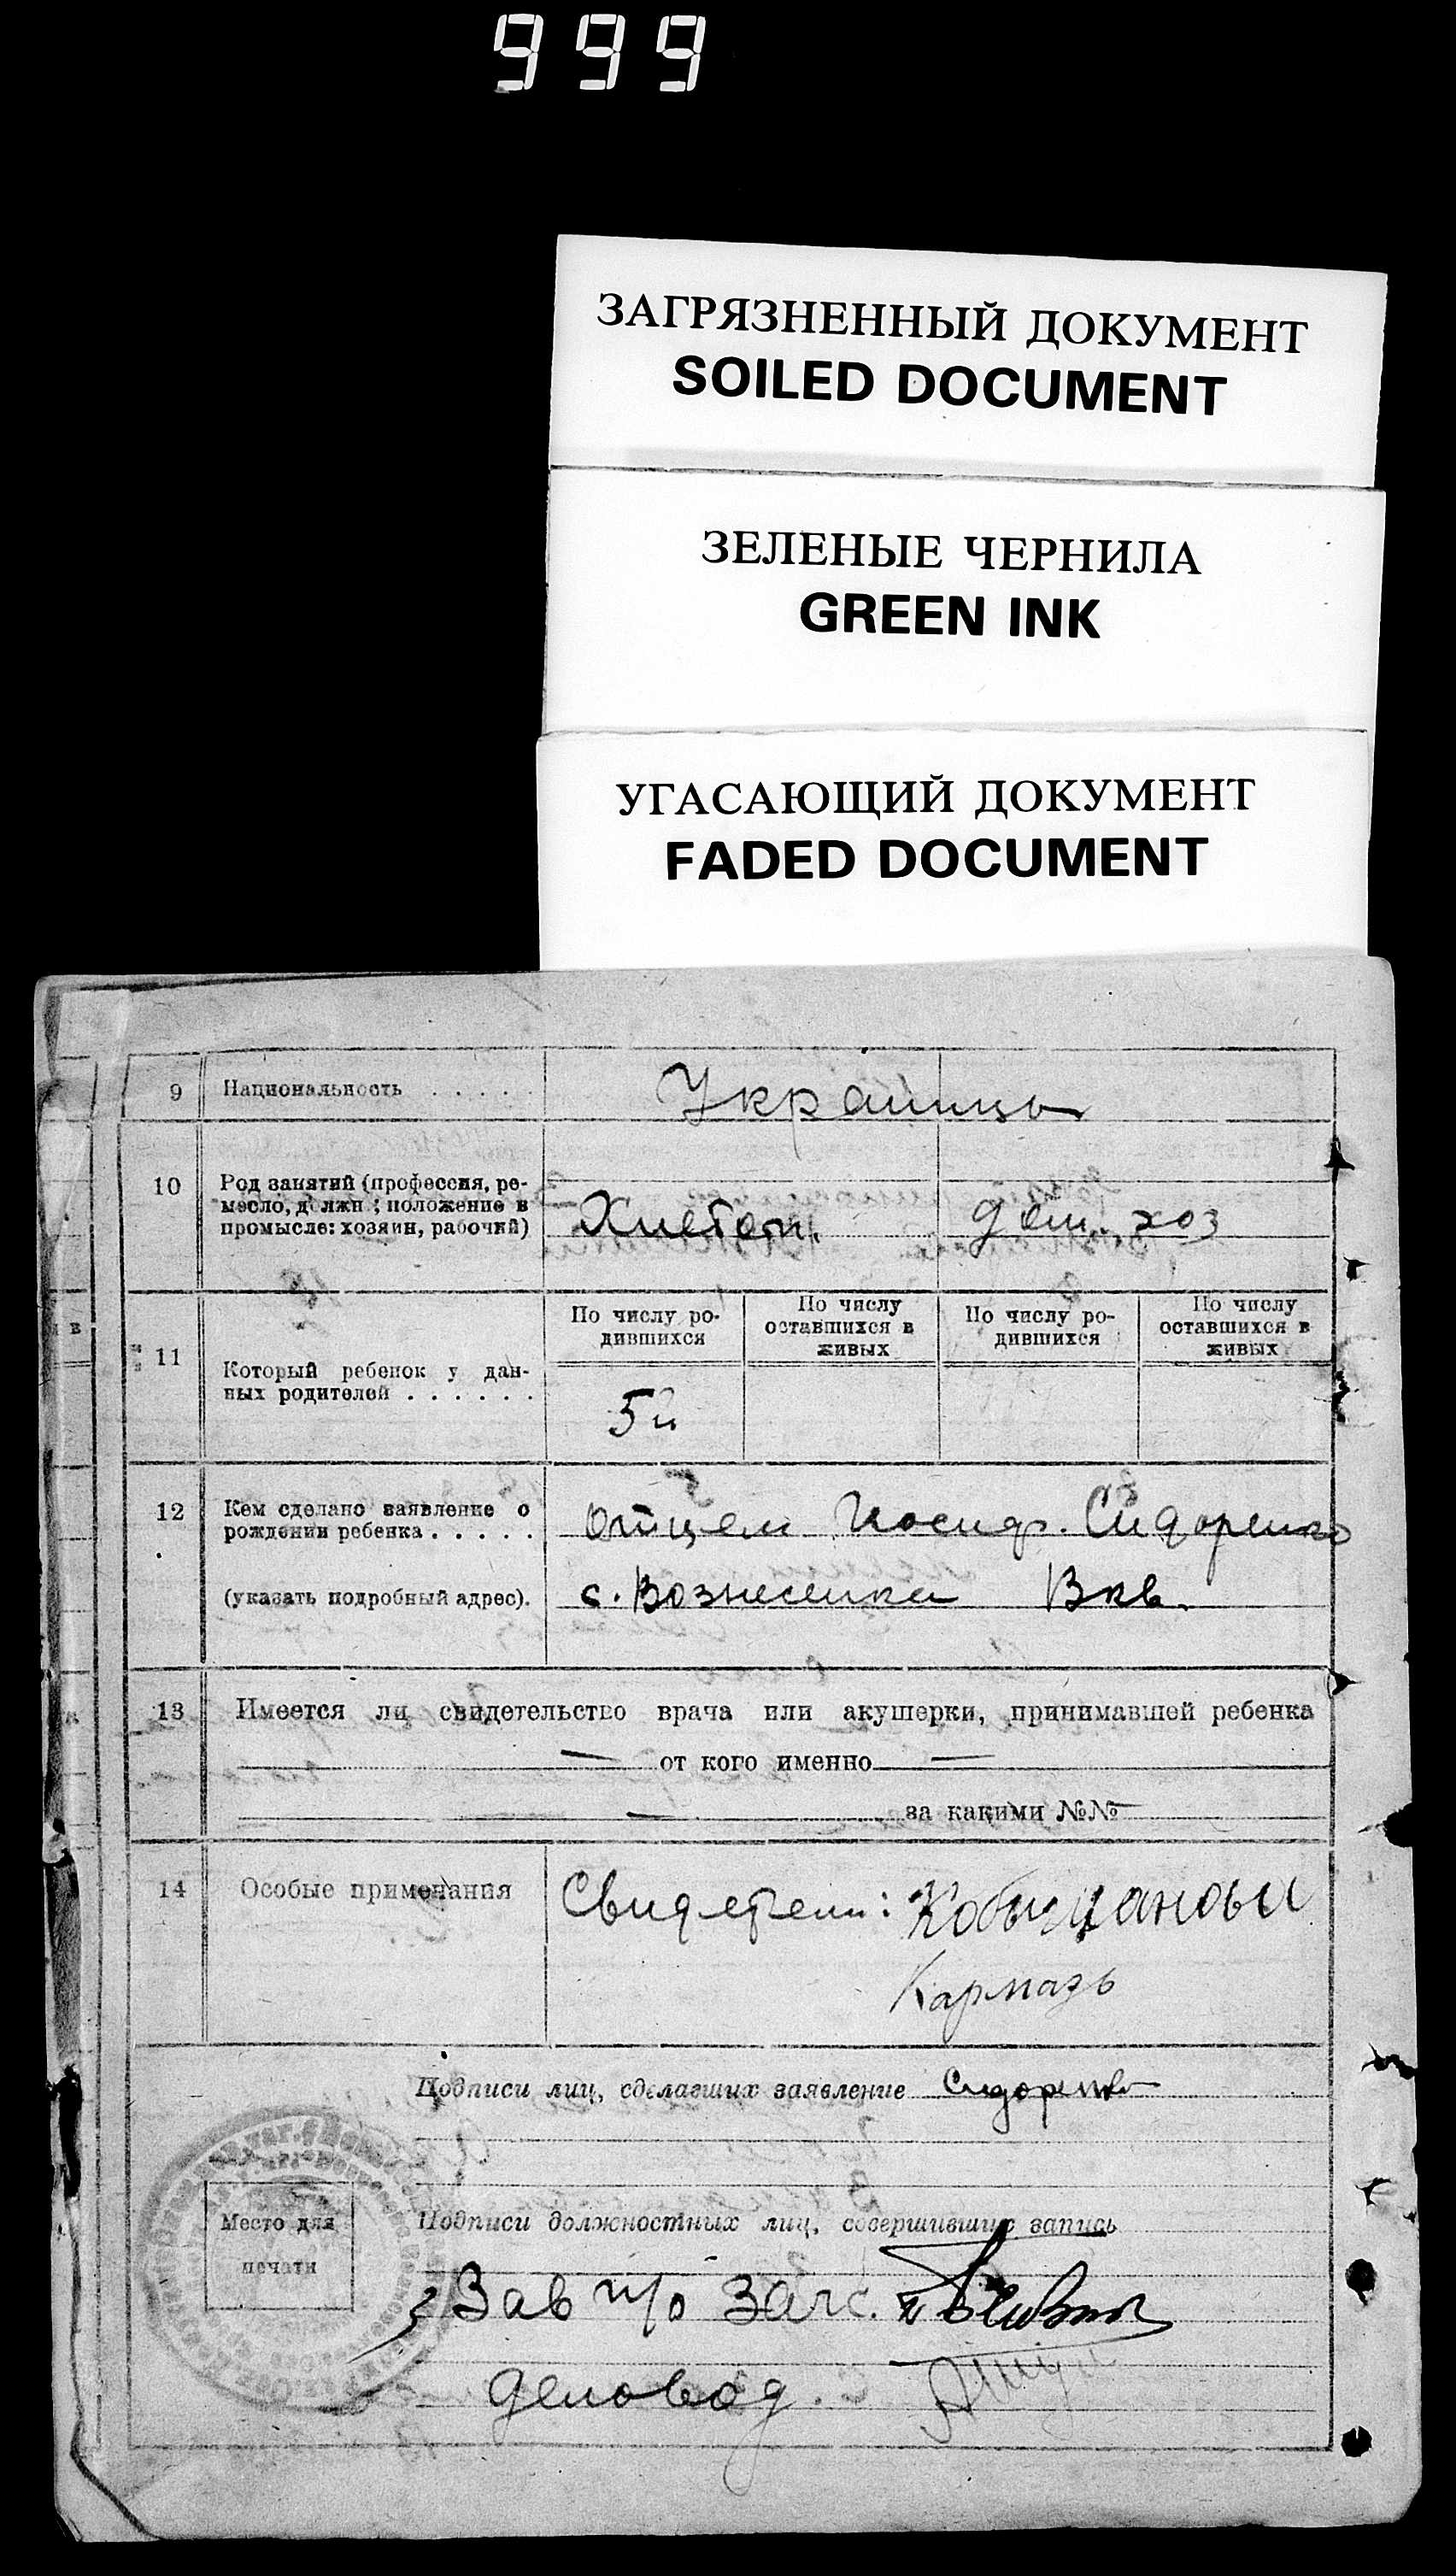 999
ЗАГРЯЗНЕННЫЙ ДОКУМЕНТ
SOILED DOCUMENT
ЗЕЛЕНЫЕ ЧЕРНИЛА
GREEN INK
УГАСАЮЩИЙ ДОКУМЕНТ
FADED DOCUMENT
9 Национальность . . . . . Украинцы
10 Род занятий (профессия, ре-
месло, должн; положение в
промысле: хозяин, рабочий)
Хлебоп. дом. хоз
11 Который ребенок у дан-
ных родителей . . . . . .
По числу ро-
дившихся
По числу
оставшихся в
живых
По числу ро-
дившихся
По числу
оставшихся в
живых
5й
12 Кем сделано заявление о
рождении ребенка . . . . .
Отцем Иосиф. Сидоренко
(указать подробный адрес). с. Вознесенка Вкв.
13 Имеется ли свидетельство врача или акушерки, принимавшей ребенка
— от кого именно —
— за какими №№ —
14 Особые примечания Свидетели:
Кармазь
Подписи лиц, сделавших заявление Сидоренко
Место для
печати
Подписи должностных лиц, совершивших запись
Зав п/о загс.
Деловод.